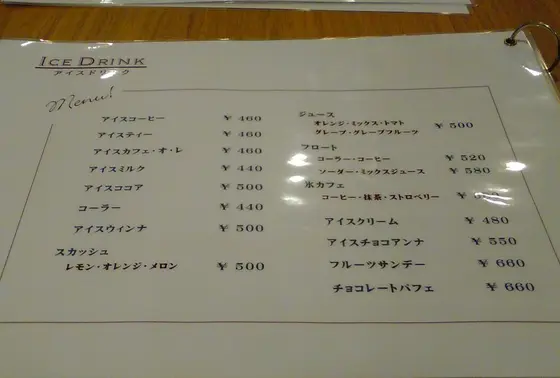 ICE DRINK
アイスドリンク
Menu!
アイスコーヒー ¥ 460
アイスティー ¥ 460
アイスカフェ・オ・レ ¥ 460
アイスミルク ¥ 440
アイスココア ¥ 500
コーラー ¥ 440
アイスウィンナ ¥ 500
スカッシュ
レモン・オレンジ・メロン ¥ 500
ジュース
オレンジ・ミックス・トマト
グレープ・グレープフルーツ ¥ 500
フロート
コーラー・コーヒー ¥ 520
ソーダー・ミックスジュース ¥ 580
氷カフェ
コーヒー・抹茶・ストロベリー ¥
アイスクリーム ¥ 480
アイスチョコアンナ ¥ 550
フルーツサンデー ¥ 660
チョコレートパフェ ¥ 660